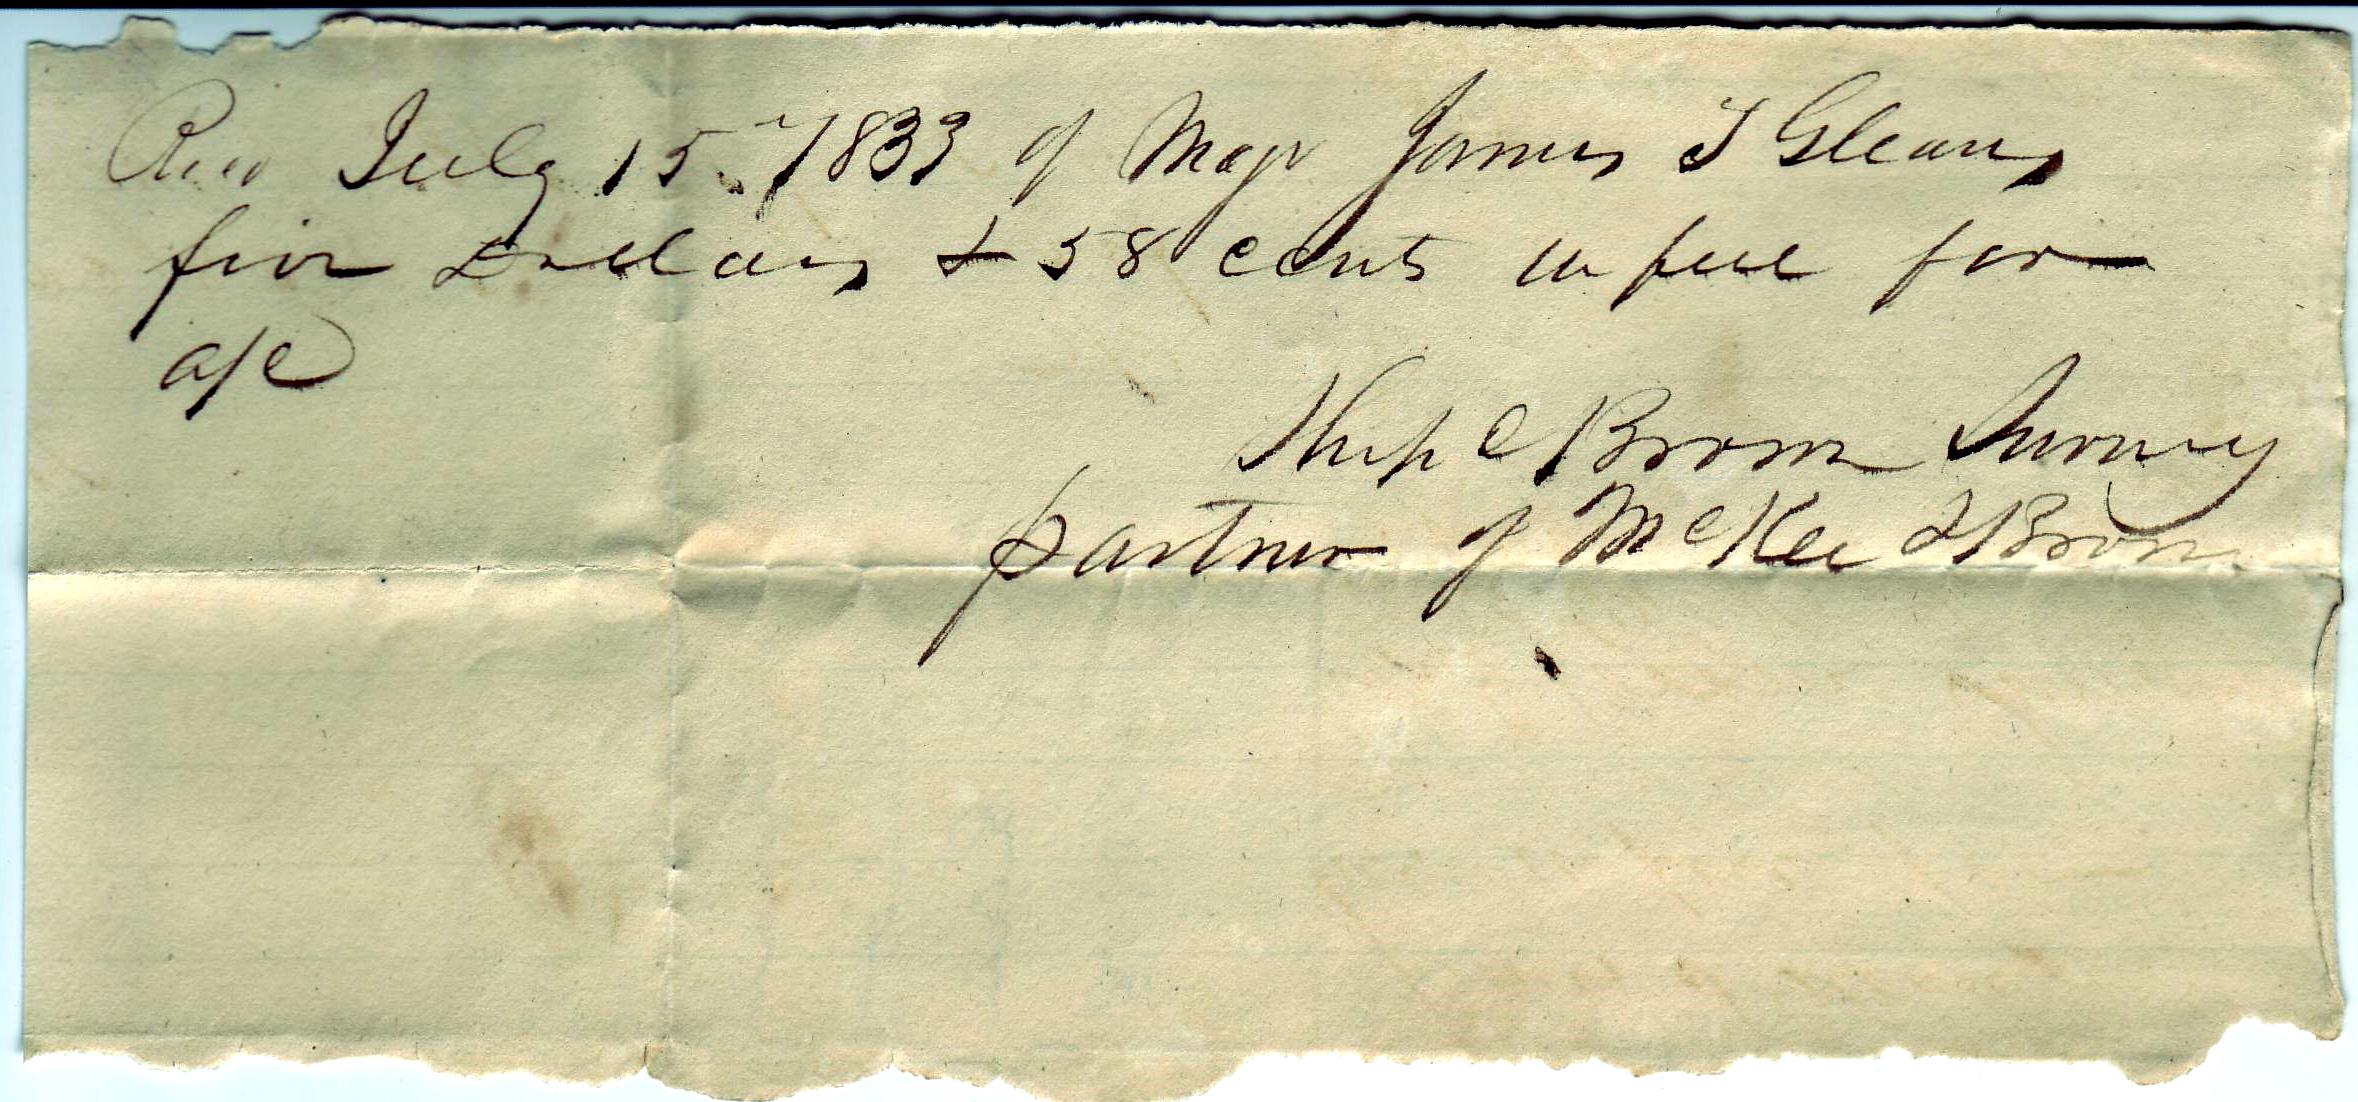 Recd July 15 1833 of Majr James T Gleaves
five Dollars & 58 cents in full for
a/c
Brown Surviving
partner of McKee & Brown